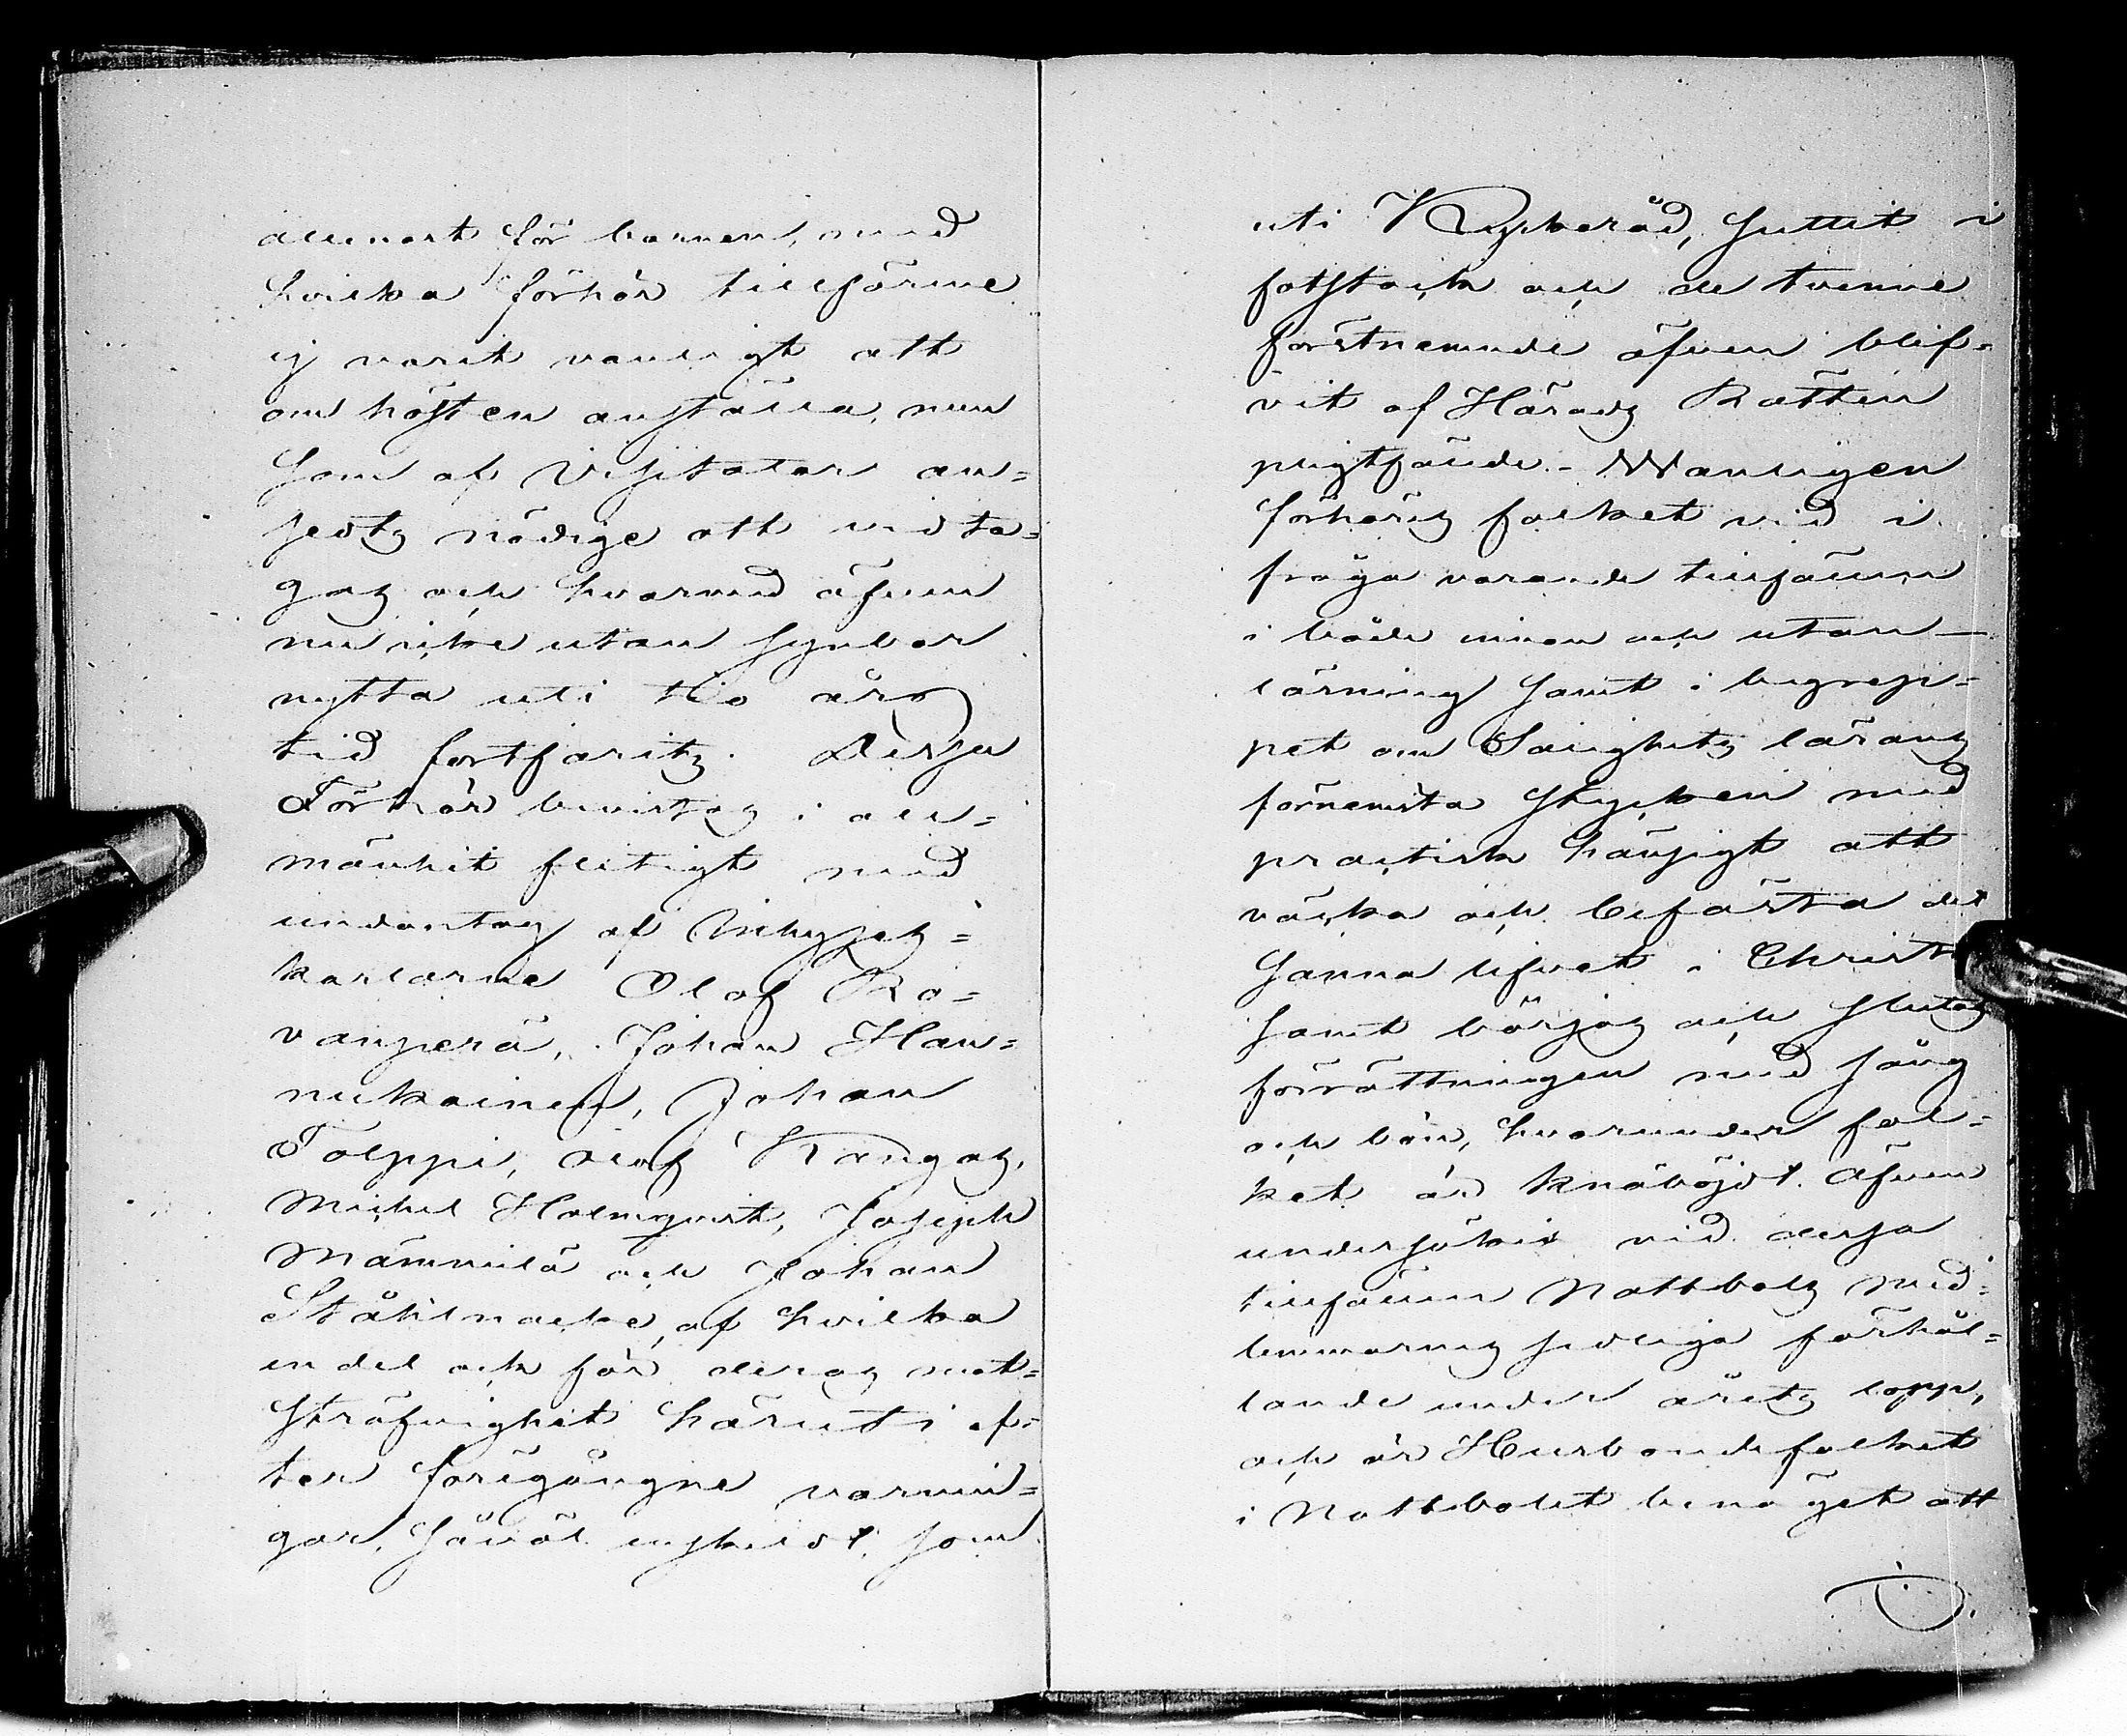 allenast för barnen, med
hvilka förhör tillförene
ej varit vanligt att
om hösten anställa, men
som af Visitator an-
sedts nödige att vidta-
gas och hvarmed äfven
nu icke utan synbar
nytta uti tio års
tid fortfarits. Dessa
Förhör bevistas i all-
mänhet flitigt med
undantag af Inhyses-
karlarne Olof Ro-
vanperä, Johan Han-
nukainen, Johan
Tolppi, Olof Kangas,
Michel Holmqvist, Joseph
Mämmilä och Johan
Ståhlnacke, af hvilka
en del och för deras mot-
sträfvighet häruti ef-
ter föregångne varnin-
gar, såväl enskildt, som
uti Kyrkoråd, suttit i
fotstock och de tvenne
förstnemnde äfven blif-
vit af Härads Rätten
pligtfälde. - Wanligen
förhörs folket vid i
fråga varande tillfällen
i både innan och utan-
läsning samt i begrep-
pet om Salighets lärans
förnemsta stycken med
practisk hänsigt att
väcka och befästa det
sanna lifvet i Christo
samt börjas och slutas
förrättningen med sång
och bön, hvarunder fol-
ket är knäböjdt. Äfven
undersökes vid dessa
tillfällen Nattbols med-
lemmarnes sedliga förhål-
lande under årets lopp,
och är Husbondefolket
i Nattbolet benäget att